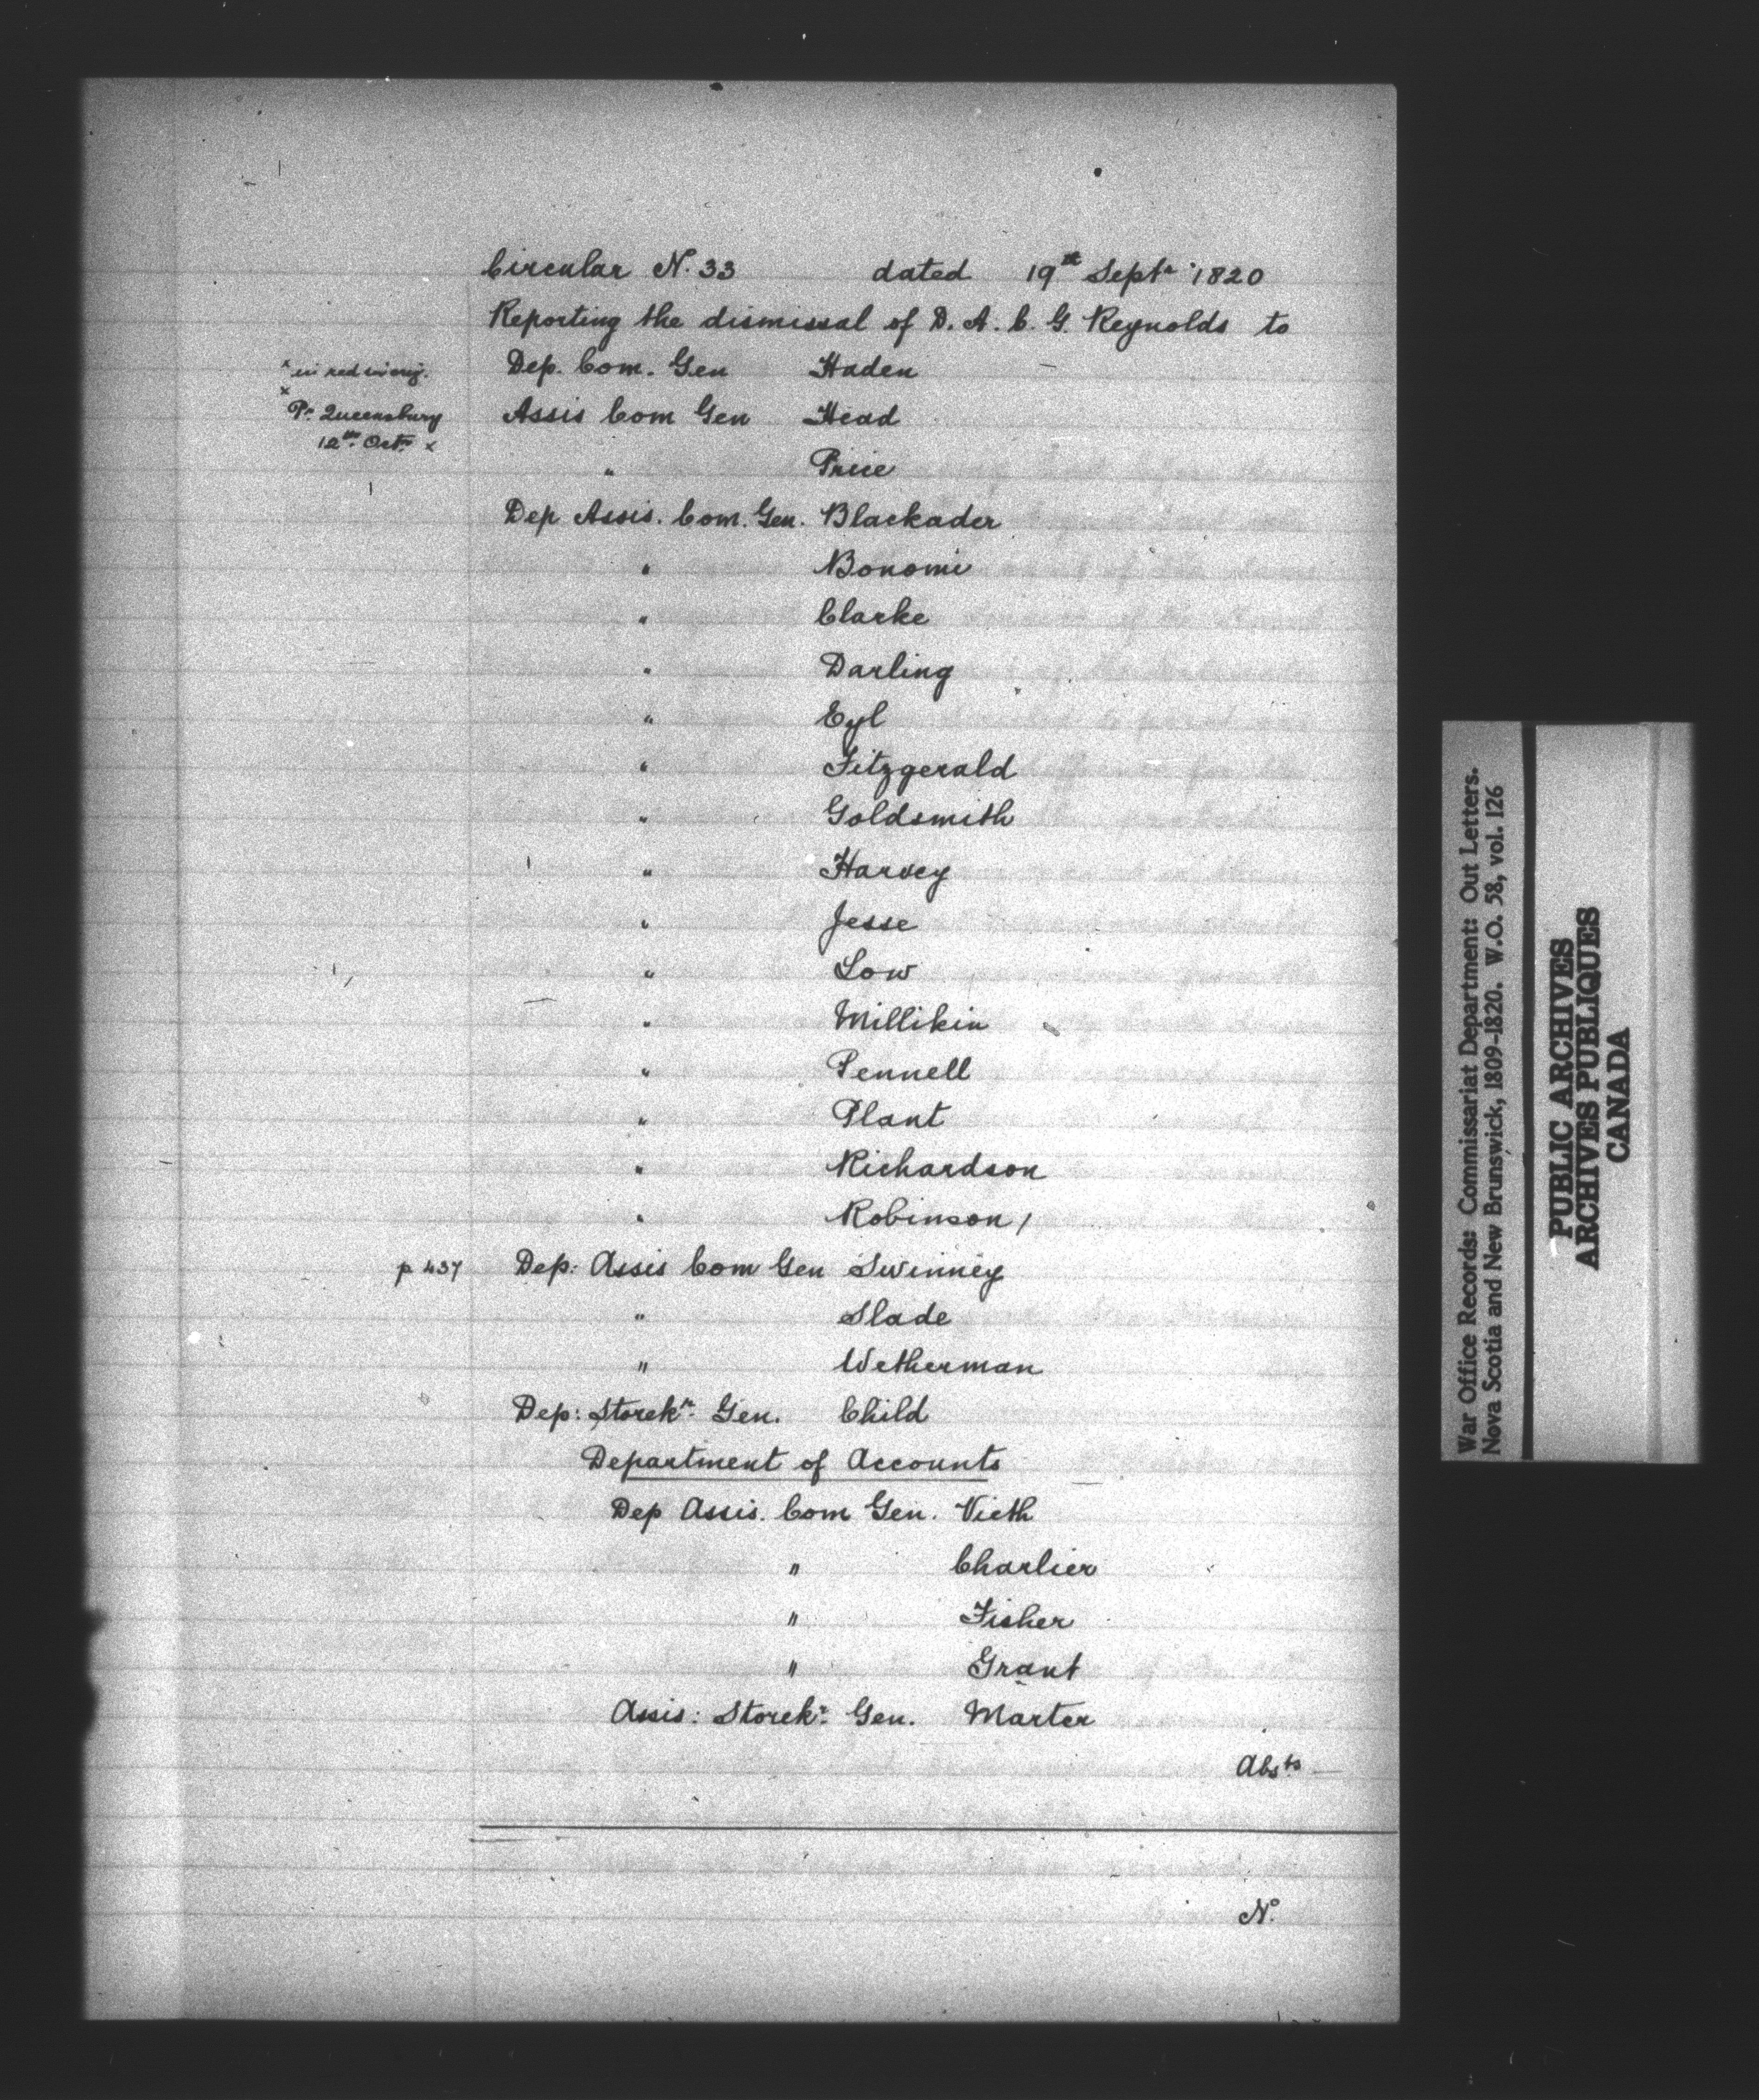 Circular N. 33 dated 19th Septr 1820
Reporting the dismissal of D. A. C. G. Reynolds to
x in red in orig. Dep. Com. Gen Haden
x Pr Queensbury Assis Com Gen Head
12th Octr x
" Price
Dep Assis. Com. Gen. Blackader
" Bonomi
" Clarke
" Darling
" Eyl
" Fitzgerald
" Goldsmith
" Harvey
" Jesse
" Low
" Millikin
" Pennell
" Plant
" Richardson
" Robinson/
p 437 Dep: Assis Com Gen Swinney
" Slade
" Wetherman
Dep: Storekr. Gen. Child
Department of Accounts
Dep Assis. Com Gen. Vieth
" Charlier
" Fisher
" Grant
Assis: Storekr. Gen. Marter
Absts
No.
War Office Records: Commissariat Department: Out Letters.
Nova Scotia and New Brunswick, 1809-1820. W.O. 58, vol. 126
PUBLIC ARCHIVES
ARCHIVES PUBLIQUES
CANADA